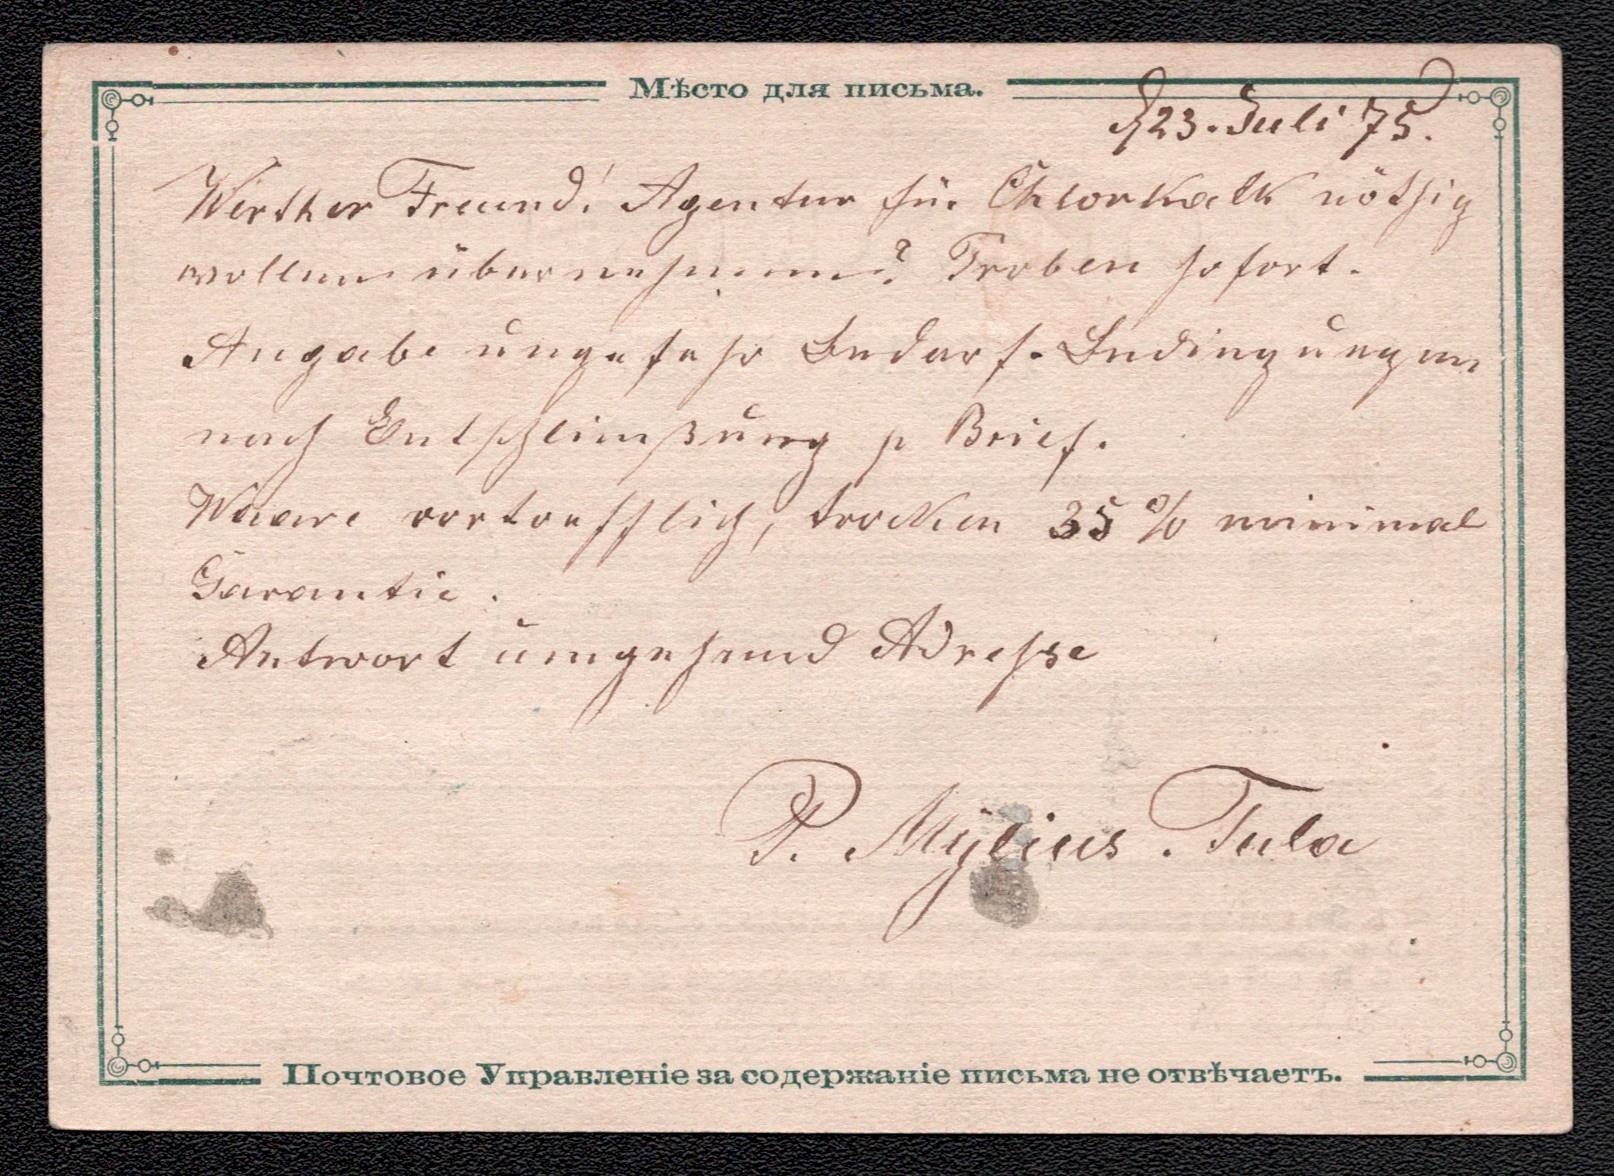 Мѣсто для письма.
d 23. Juli 75.
Werther Freund! Agentur für Chlorkalk nöthig
wollen übernehmen? Proben sofort.
Angabe ungefehr Bedarf. Bedingungen
nach Entschließung p Brief.
Waare vortrefflich, trocken 35 % minimal
Garantie.
Antwort umgehend Adresse
P. Mylius. Tula
Почтовое Управленіе за содержаніе письма не отвѣчаетъ.